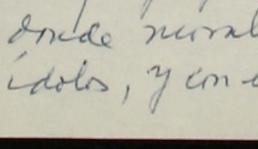 donde moral
ídolos, y con